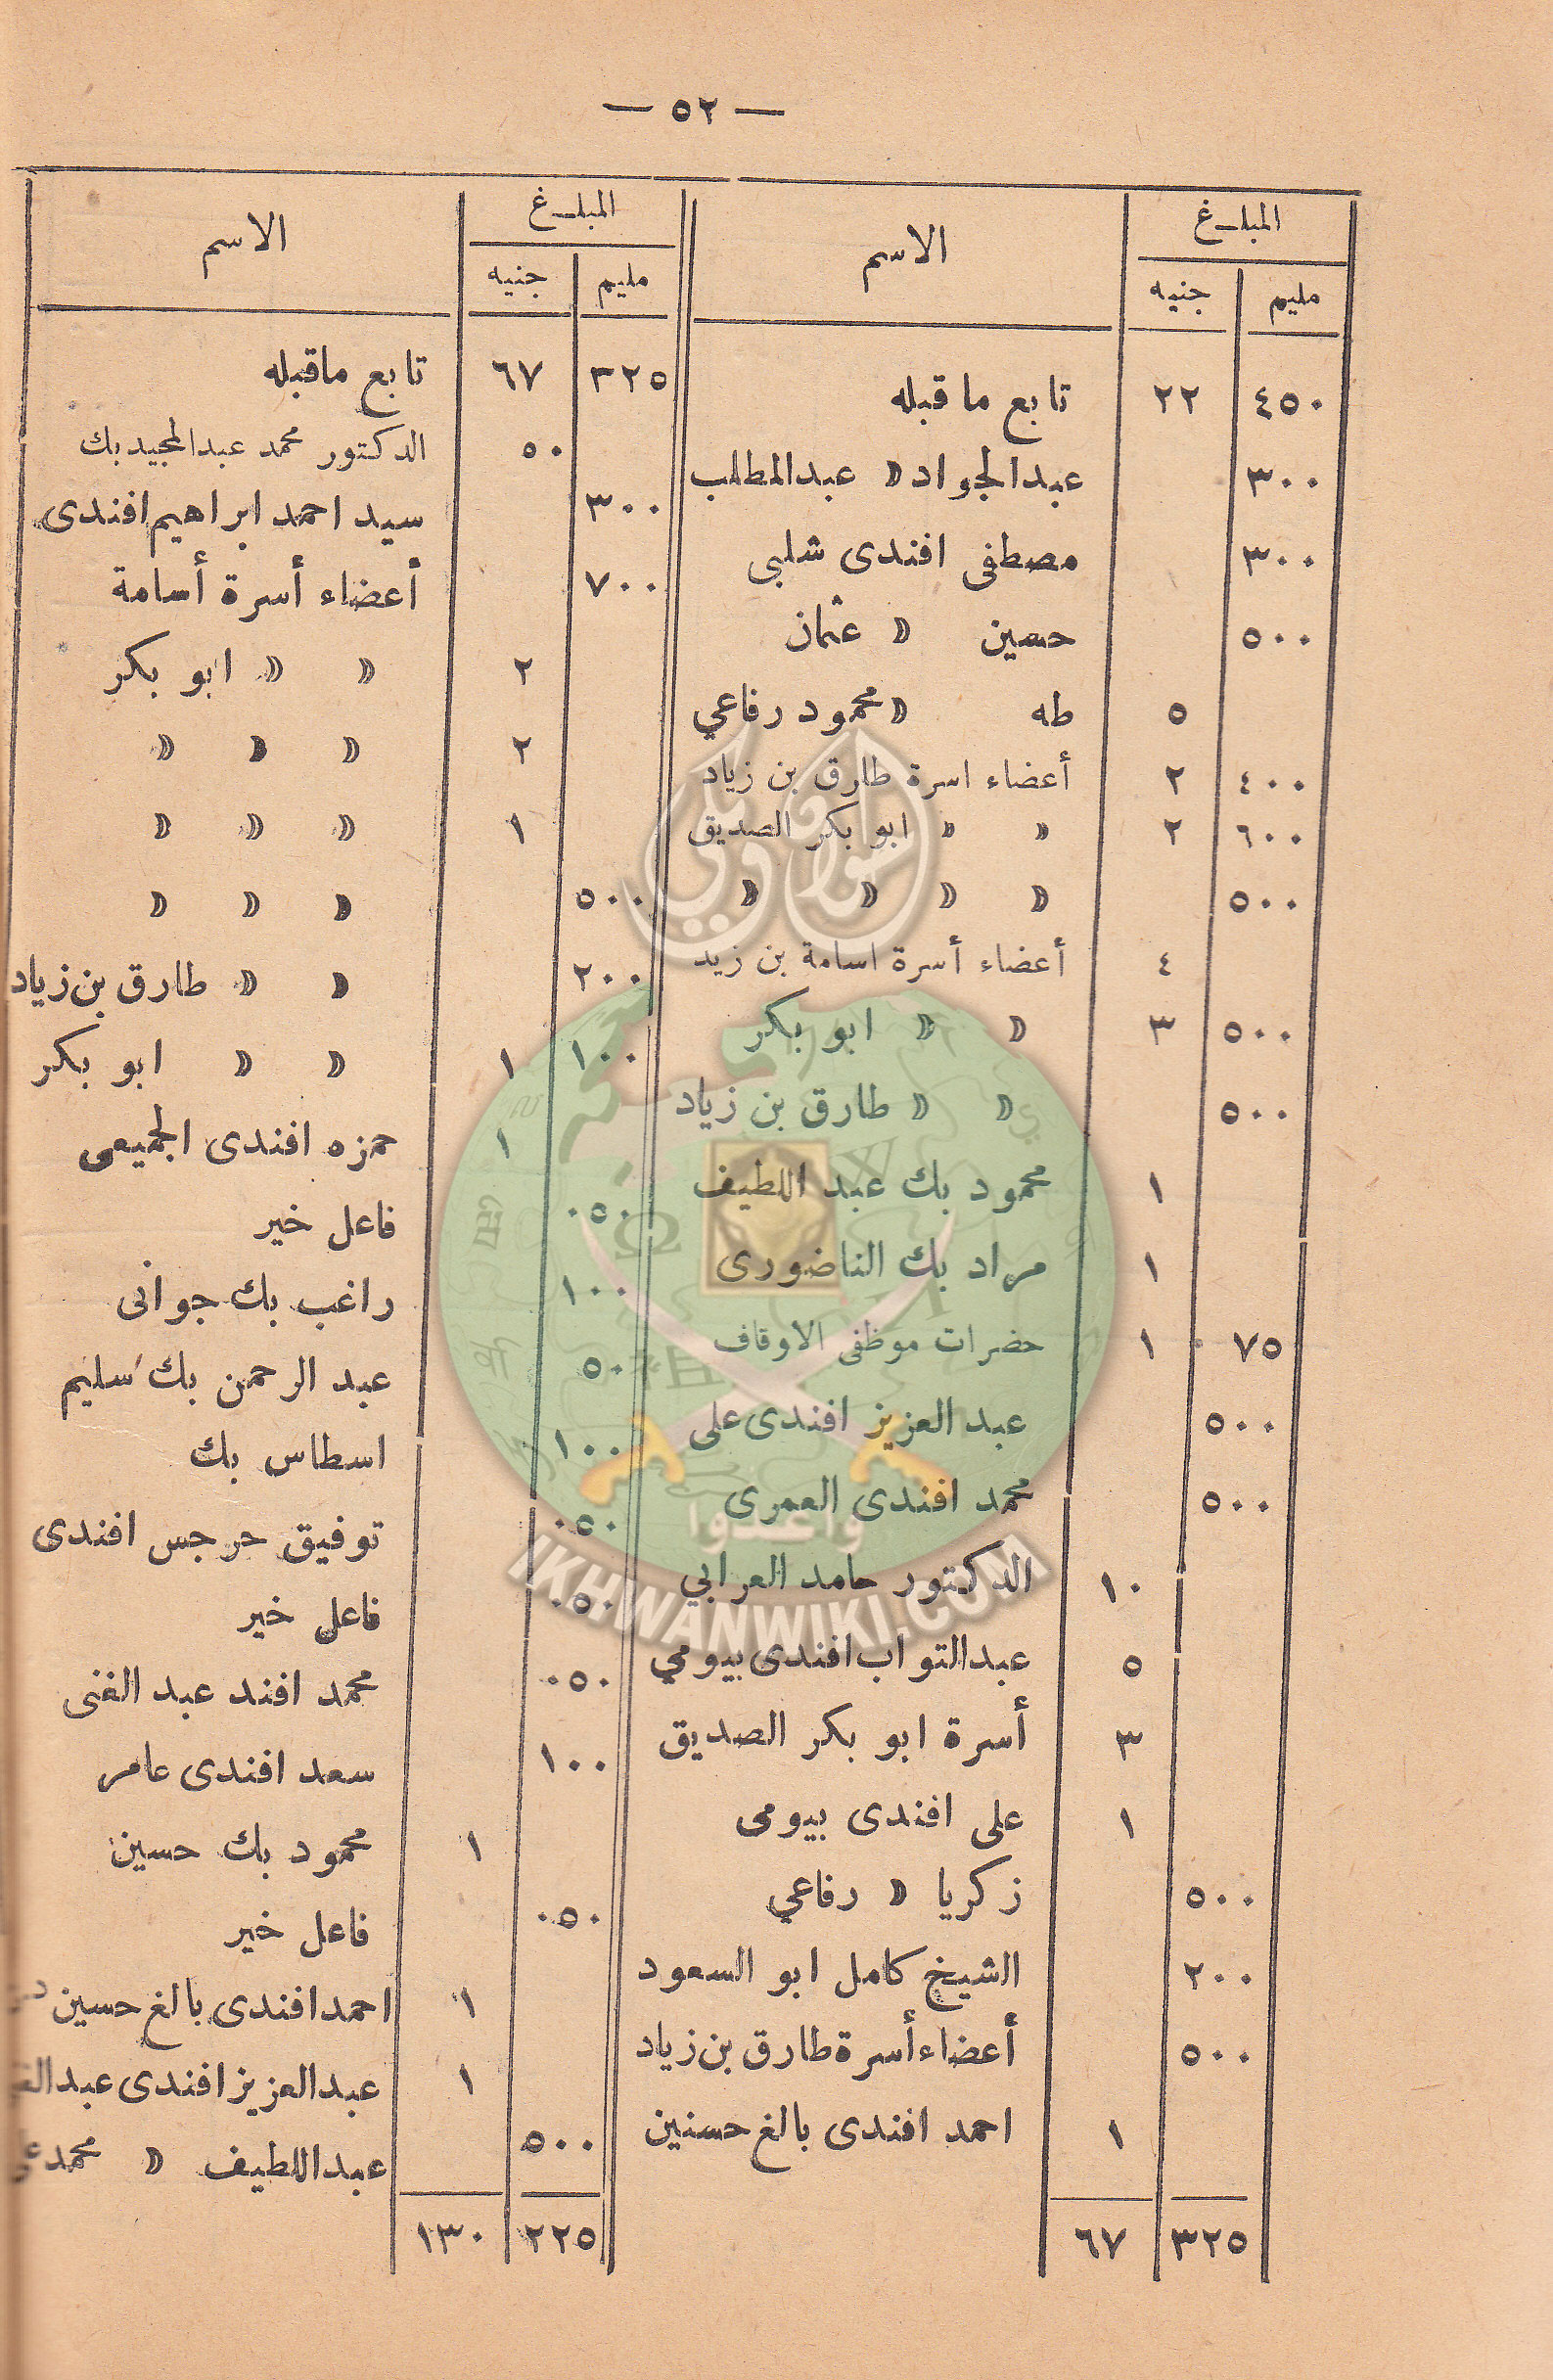 — ٥٢ —
المبلغ الاسم
مليم جنيه
٤٥٠ ٢٢ تابع ما قبله
٣٠٠ عبدالجواد » عبدالمطلب
٣٠٠ مصطفى افندى شلبى
٥٠٠ حسين » عثمان
٥ طه » محمود رفاعي
٤٠٠ ٢ أعضاء اسرة طارق بن زياد
٦٠٠ ٢ » » ابو بكر الصديق
٥٠٠ » » » »
٤ أعضاء أسرة اسامة بن زيد
٥٠٠ ٣ » » ابو بكر
٥٠٠ » » طارق بن زياد
١ محمود بك عبد اللطيف
١ مراد بك الناضورى
٧٥ ١ حضرات موظفى الاوقاف
٥٠٠ عبد العزيز افندى على
٥٠٠ محمد افندى العمرى
١٠ الدكتور حامد العرابي
٥ عبدالتواب افندى بيومي
٣ أسرة ابو بكر الصديق
١ على افندى بيومى
٥٠٠ زكريا » رفاعي
٢٠٠ الشيخ كامل ابو السعود
٥٠٠ أعضاء أسرة طارق بن زياد
١ احمد افندى بالغ حسنين
٣٢٥ ٦٧
المبلغ الاسم
مليم جنيه
٣٢٥ ٦٧ تابع ماقبله
٥٠ الدكتور محمد عبدالمجيد بك
٣٠٠ سيد احمد ابراهيم افندى
٧٠٠ أعضاء أسرة أسامة
٢ » » ابو بكر
٢ » » »
١ » » »
٥٠٠ » » »
٢٠٠ » » طارق بن زياد
١٠٠ ١ » » ابو بكر
١ حمزه افندى الجميعى
٠٥٠ فاعل خير
١٠٠ راغب بك جوانى
٥٠ عبد الرحمن بك سليم
١٠٠ اسطاس بك
٠٥٠ توفيق جرجس افندى
٠٥٠ فاعل خير
٠٥٠ محمد افند عبد الغنى
١٠٠ سعد افندى عامر
١ محمود بك حسين
٠٥٠ فاعل خير
١ احمد افندى بالغ حسين
١ عبدالعزيز افندى
٥٠٠ عبد اللطيف » محمد
٢٢٥ ١٣٠
وأعدوا
IKHWANWIKI.COM